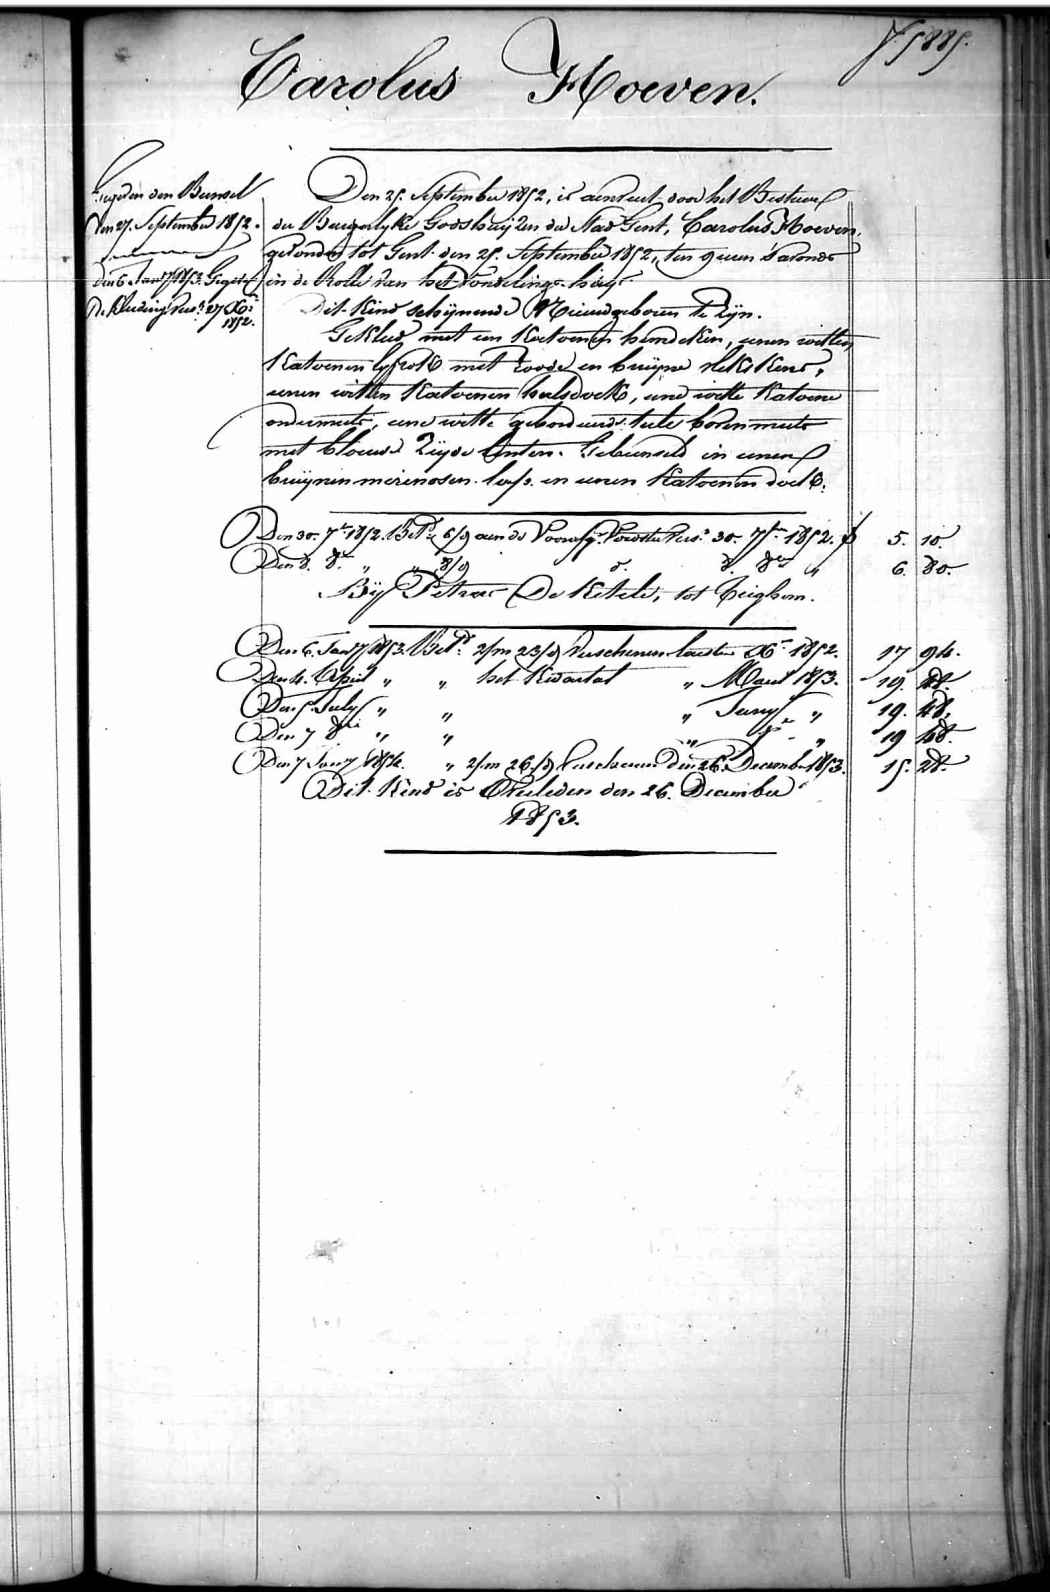 f. 5885.
Carolus Hoeven.
Gegeven den Bunsel
den 27. September 1852.
den 6. Jany 1853. Gegev.
De Kleeding Vers. 27 Xbr
1852.
Den 25. September 1852, is aenveerd door het Bestuer
der Burgerlyke Godshuyzen der Stad Gent, Carolus Hoeven,
gevonden tot Gent den 25. September 1852, ten 9 uren s'avonds
in de Rolle van het Vondelings-huys
Dit Kind schijnende Nieuwgeboren te zyn.
Gekleed met een Katoenen hemdeken, eenen witten
Katoenen lyfrok met roode en bruyne plekskens,
eenen witten Katoenen halsdoek, eene witte Katoene
ondermuts, eene witte geborduerde tule bovenmuts
met blouwe Zijde linten. Gebunseld in eenen
bruynen merinosen lap en eenen Katoenen doek.
Den 30. 7br 1852. Betd 6/9 aen de Voorsz. Voedster Vers. 30. 7br 1852. f 5. 10.
Den d. 8r „ „ 8/9 d. d. 8br „ 6. 80.
Bij Petrus De Ketele, tot Teighem.
Den 6. Jany 1853. Betd 2/m 23/d Verschenen laesten Xbr 1852. 17 94.
Den 4. April „ „ het Kwartal „ Maert 1853. 19. 48.
Den 5. July „ „ „ Juny „ 19. 48.
Den 7 8br „ „ „ 7br „ 19 48.
Den 7 Jany 1854. „ 2/m 26/d Verschenen den 26. December 1853. 15. 28.
Dit Kind is Overleden den 26. December
1853.